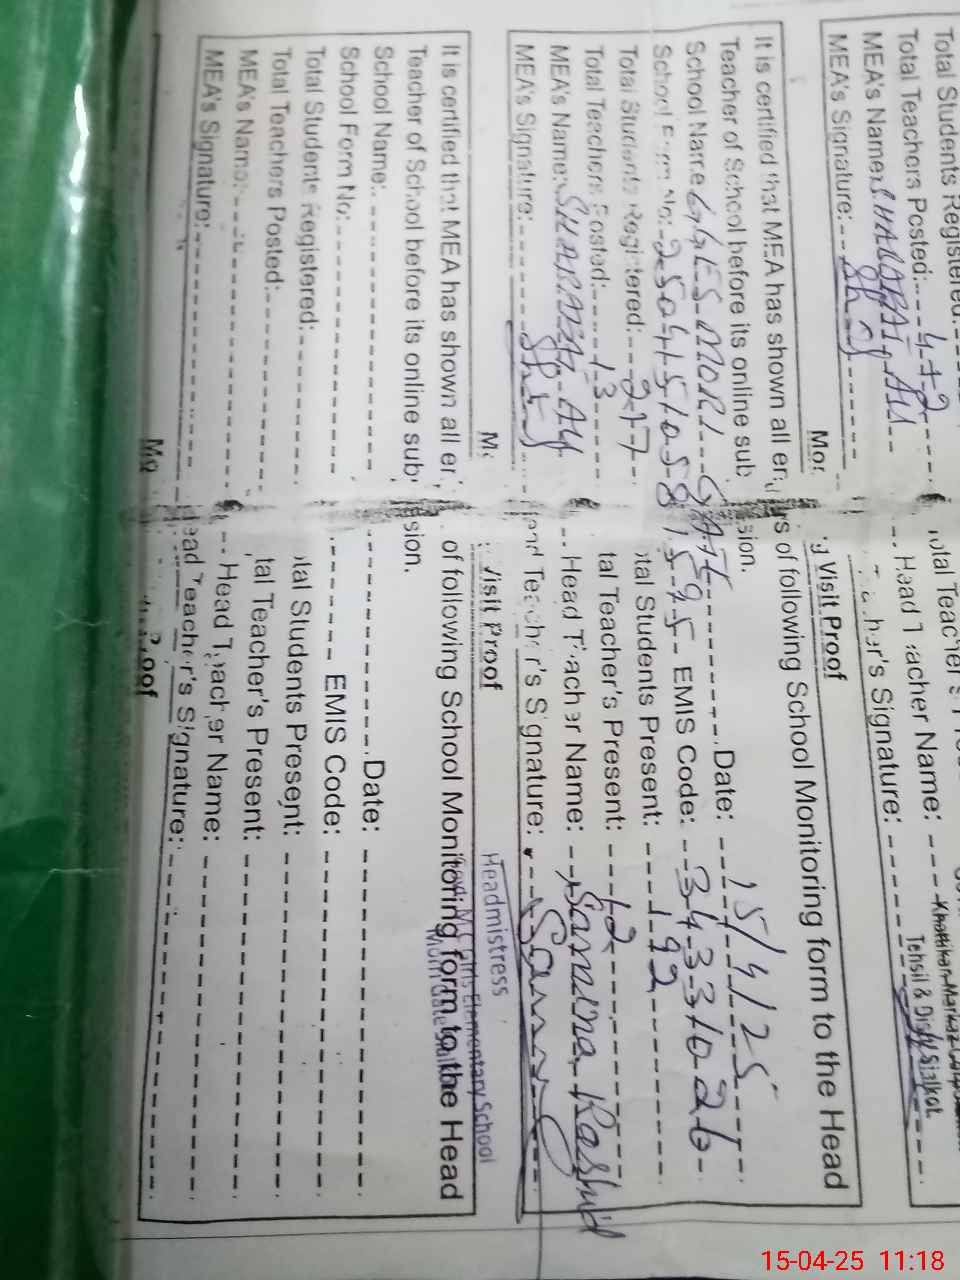 Total Students Registered:
Total Teachers Posted: 12
MEA's Name: SHARAFAT ALI
MEA's Signature:
Head Teacher Name:
Teacher's Signature:
Tehsil & Distt Sialkot
Visit Proof
It is certified that MEA has shown all of following School Monitoring form to the Head
Teacher of School before its online sub sion.
School Name GGES MORI GATE Date: 15/4/25
School Form No: EMIS Code: 34331026
Total Students Registered: 217 Total Students Present: 192
Total Teachers Posted: 13 Total Teacher's Present: 12
MEA's Name: SHARAFAT ALI Head Teacher Name: Samina Rashid
MEA's Signature: Head Teacher's Signature:
Headmistress
Girls Elementary School
Visit Proof
It is certified that MEA has shown all of following School Monitoring form to the Head
Teacher of School before its online sub sion.
School Name: Date:
School Form No: EMIS Code:
Total Students Registered: Total Students Present:
Total Teachers Posted: Total Teacher's Present:
MEA's Name: Head Teacher Name:
MEA's Signature: Head Teacher's Signature:
Proof
15-04-25 11:18